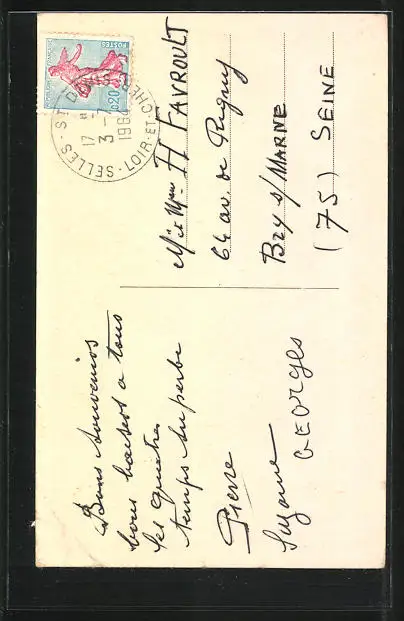 Bons souvenirs
bons baisers a tous
les quatre
temps superbe
Pierre
Suzanne
GEORGES
Mr et Mme H FAVROULT
64 av. de Rigny
BRY s/ MARNE
(75) SEINE
POSTES
0,20
SELLES-ST-D
LOIR-ET-CHER
17
3 -
196